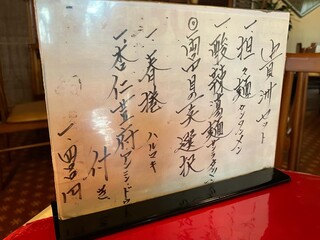 貴洲セット
一担々麺 タンタンメン
一酸辣湯麺 サンラータンメン
◎両品見て選択
一春捲 ハルマキ
一杏仁豊府 アンニンドウフ
付き
一、四〇〇円